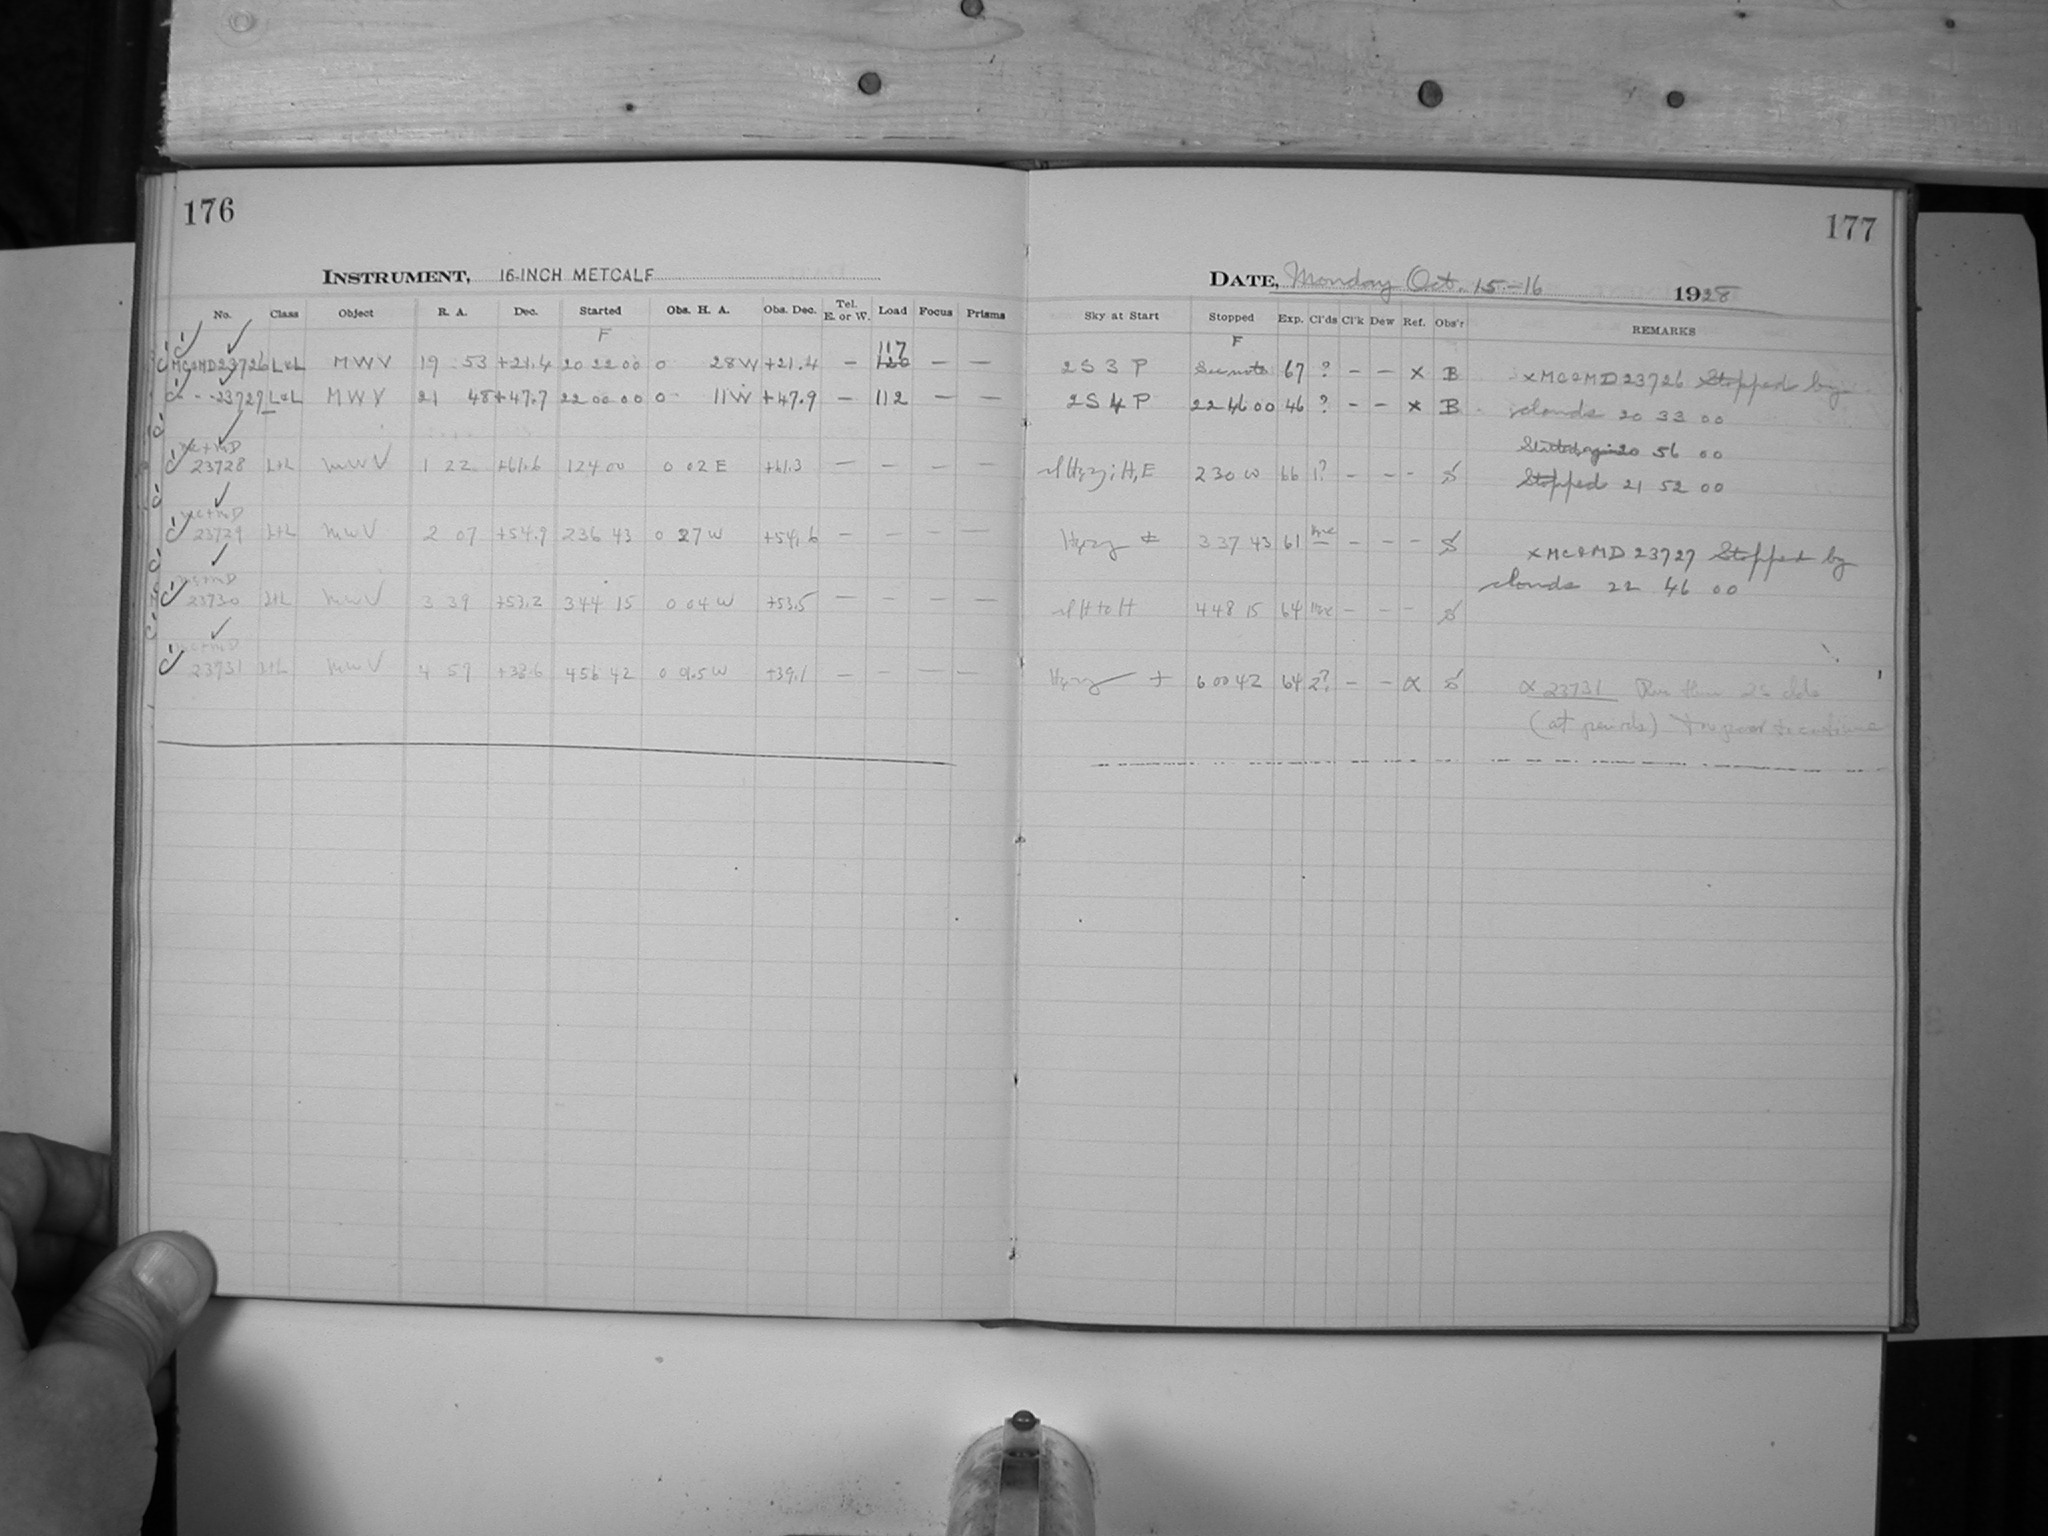 176
INSTRUMENT, 16-INCH METCALF
No. Class Object R. A. Dec. Started Obs. H. A. Obs. Dec. Tel. E. or W. Load Focus Prisms
F
117
MC&MD23726 L&L MWV 19 53 +21.4 20 22 00 0 28W +21.4 — 120 — —
" - - 23727 L&L MWV 21 48 +47.7 22 00 00 0 11W +47.9 — 112 — —
MC+MD
23728 L+L MWV 1 22 +61.6 1 24 00 0 02 E +61.3 — — — —
MC+MD
23729 L+L MWV 2 07 +54.9 2 36 43 0 27 W +54.6 — — — —
MC+MD
23730 L+L MWV 3 39 +53.2 3 44 15 0 04 W +53.5 — — — —
MC+MD
23731 L+L MWV 4 59 +38.6 4 56 42 0 0.5 W +39.1 — — — —
177
DATE, Monday Oct. 15-16 1928
Sky at Start Stopped Exp. Cl'ds Cl'k Dew Ref. Obs'r REMARKS
F
2 S 3 P See note 67 ? — — x B
2 S 4 P 22 46 00 46 ? — — x B
Hazy; H, E 2 30 00 66 1? — — - S
Hazy ± 3 37 43 61 — — - S
H to H 4 48 15 64 — — - S
Hazy + 6 00 42 64 2? — — α S
x MC&MD 23726 Stopped by
clouds 20 33 00
Started again 20 56 00
Stopped 21 52 00
x MC&MD 23727 Stopped by
clouds 22 46 00
α 23731
(at periods) too poor to continue